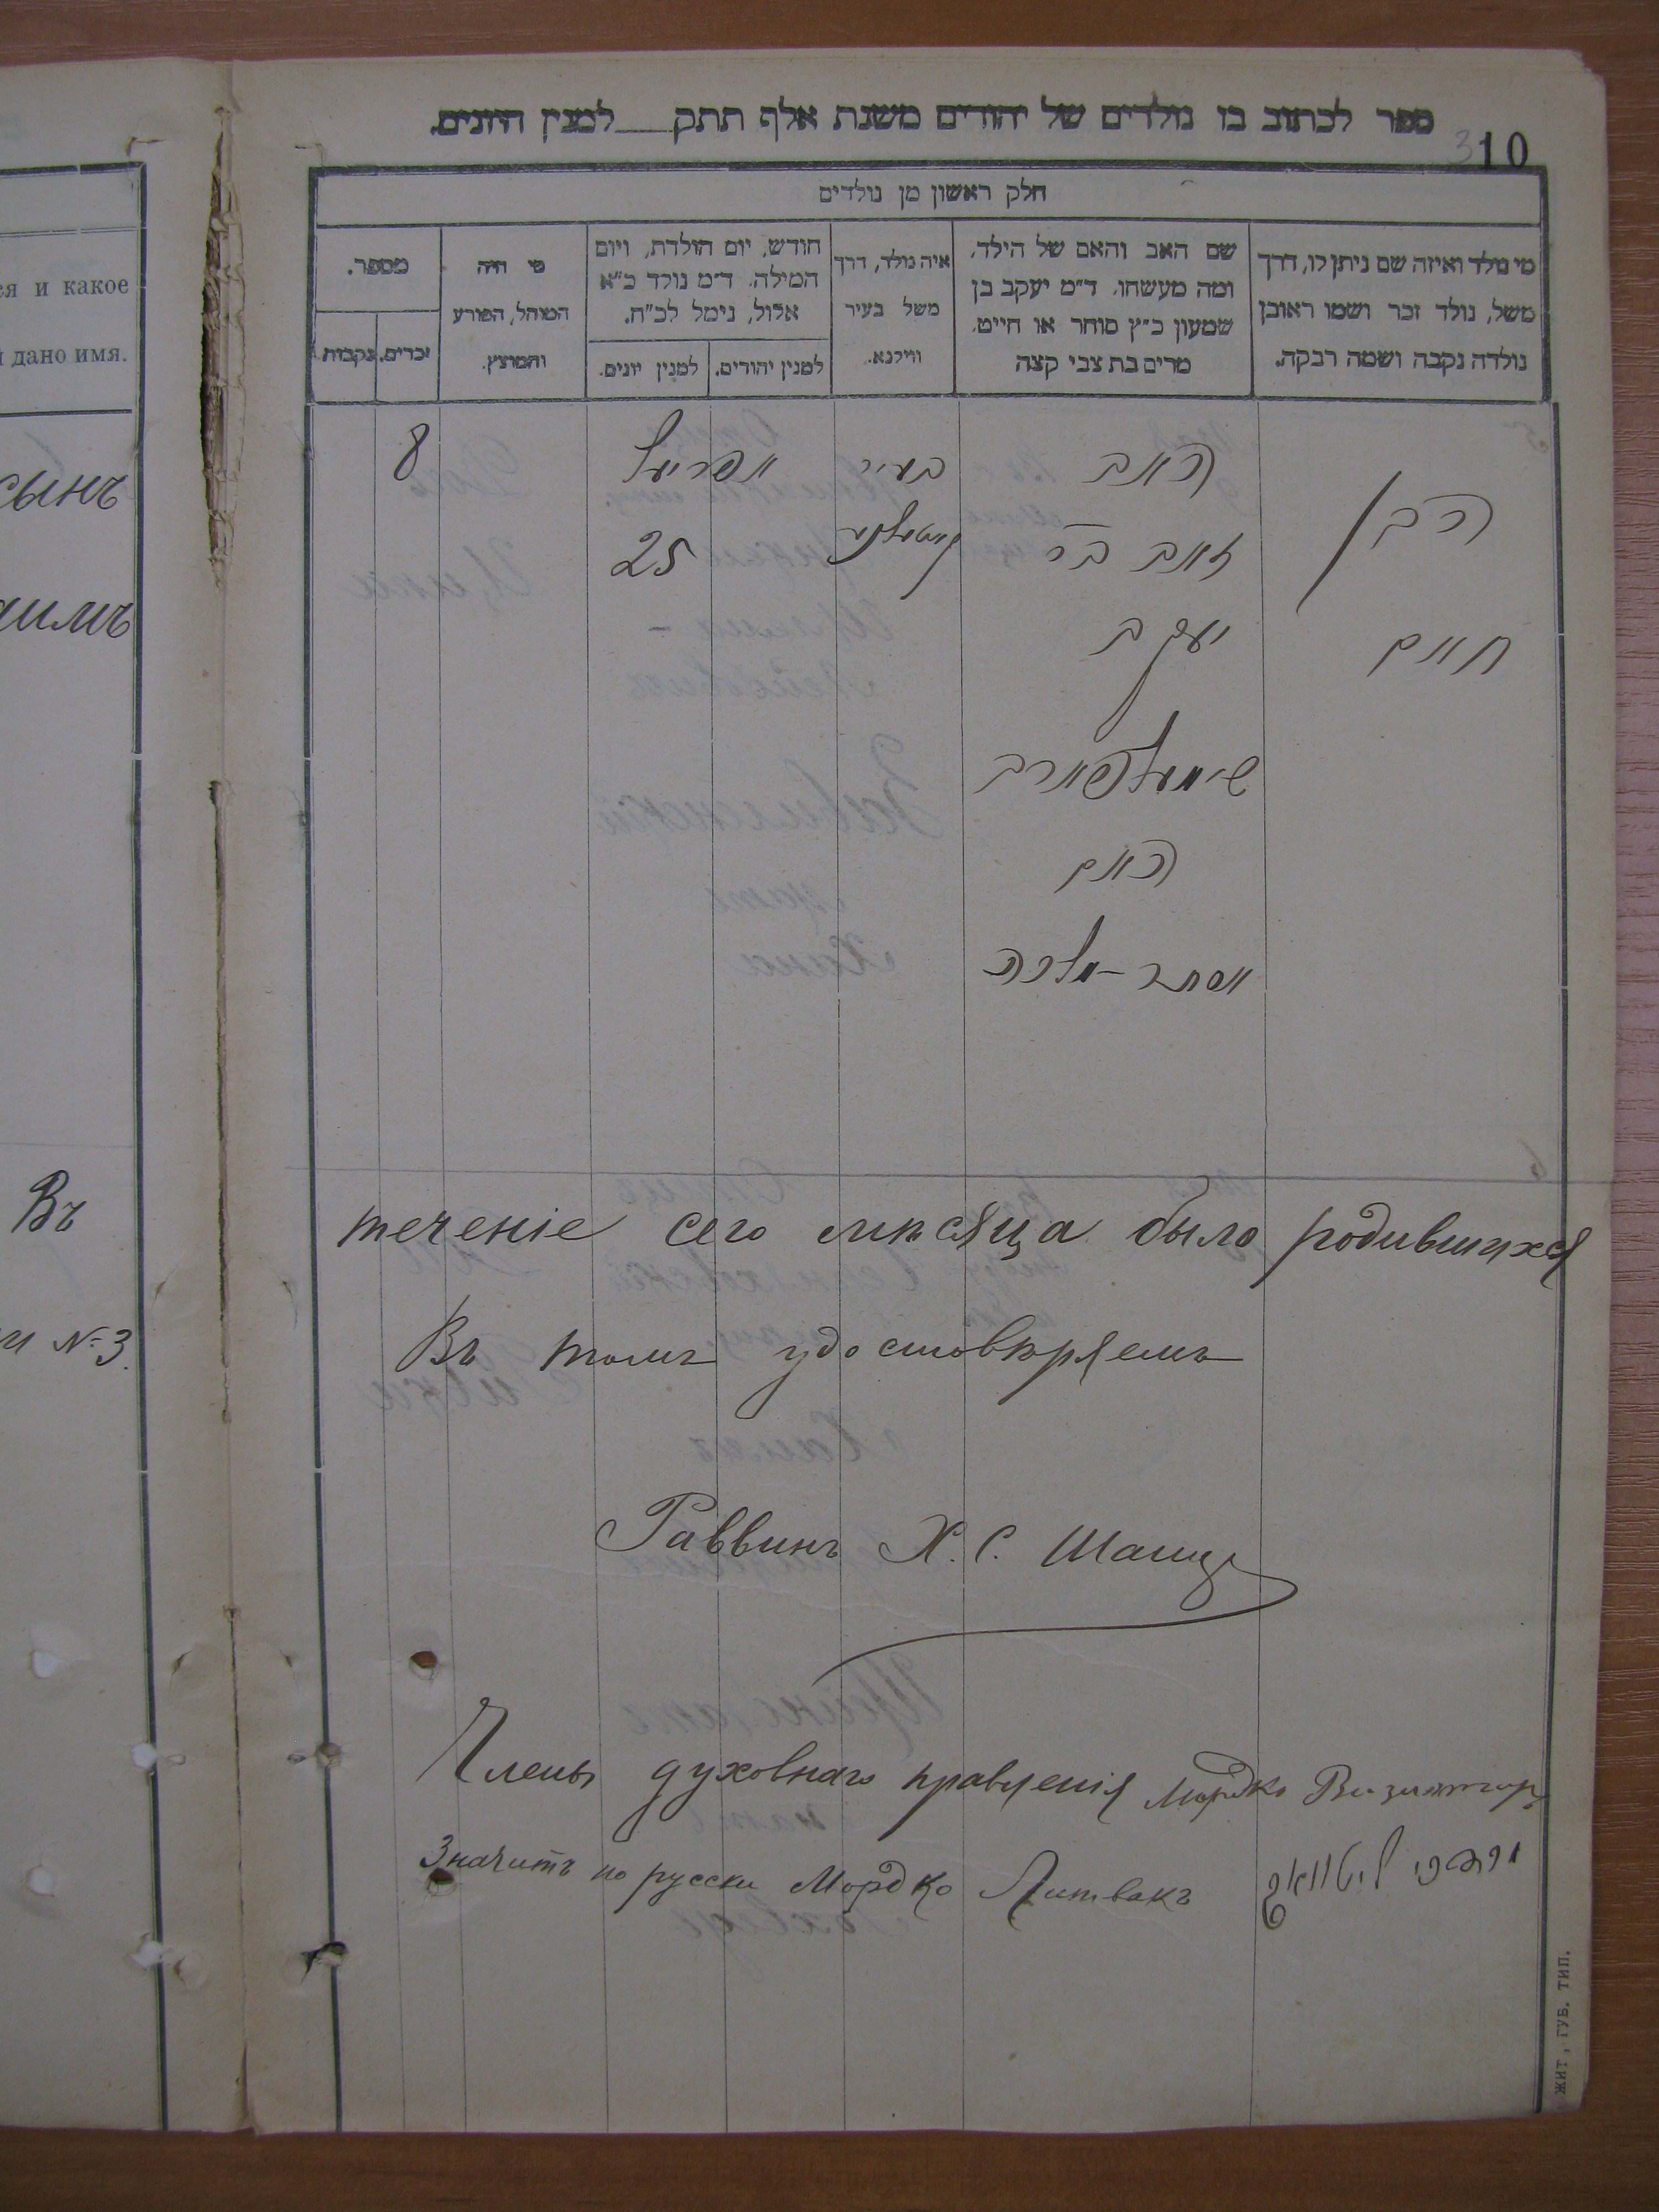 ספר לכתוב בו נולדים של יהודים משנת אלף תתק___למנין היונים.
310
חלק ראשון מן נולדים
מי נולד ואיזה שם ניתן לו, דרך
משל, נולד זכר ושמו ראובן
נולדה נקבה ושמה רבקה.
שם האב והאם של הילד,
ומה מעשהו. ד"מ יעקב בן
שמעון כ"ץ סוחר או חייט.
מרים בת צבי קצה
איה נולד, דרך
משל בעיר
ווילנא.
חודש, יום הולדת, ויום
המילה. ד"מ נולד כ"א
אלול, נימל לכ"ח.
למנין יהודים.
למנין יונים.
מי היה
המוהל, הפורע
והמוצץ.
מספר.
זכרים.
נקבות.
הבן
חיים
האב
זאב בר
יעקב
האם
אסתר-מלכה
בעיר
אפריעל
25
8
ся и какое
и дано имя.
сынъ
Въ
и №3.
теченіе сего мѣсяца было родившихся
Въ томъ удостовѣряемъ
Раввинъ Х. С.
Члены духовнаго правленія Мордко
Значитъ по русски Мордко Литвакъ
מרדכי ליטוואק
ЖИТ, ГУБ. ТИП.